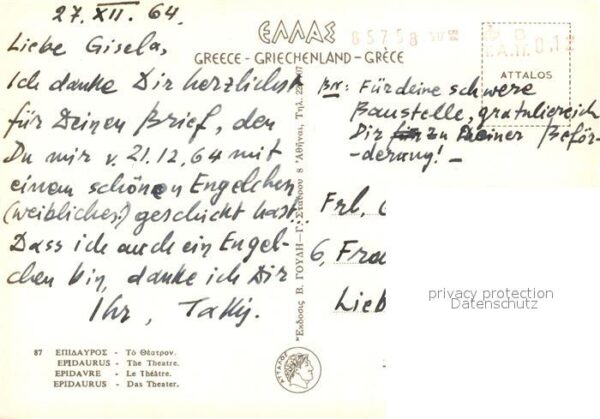 27. XII. 64.
ΕΛΛΑΣ
GREECE - GRIECHENLAND - GRÈCE
85758
0.12
ATTALOS
Liebe Gisela,
Ich danke Dir herzlichst
für Deinen Brief, den
Du mir v. 21.12.64 mit
einem schönen Engelchen
(weibliches) geschickt hast.
Dass ich auch ein Engel-
chen bin, danke ich Dir
Ihr, Takis.
Für deine schwere
Baustelle, gratuliere ich
Dir zu Deiner Beför-
derung! -
Frl.
6, Fra
Lieb
privacy protection
Datenschutz
Ἔκδοσις Β. ΓΟΥΛΗ - Γ. Στάϊκου 8 Ἀθῆναι, Τηλ.
87 ΕΠΙΔΑΥΡΟΣ - Τὸ Θέατρον.
EPIDAURUS - The Theatre.
EPIDAVRE - Le Théâtre.
EPIDAURUS - Das Theater.
ΑΤΤΑΛΟΣ